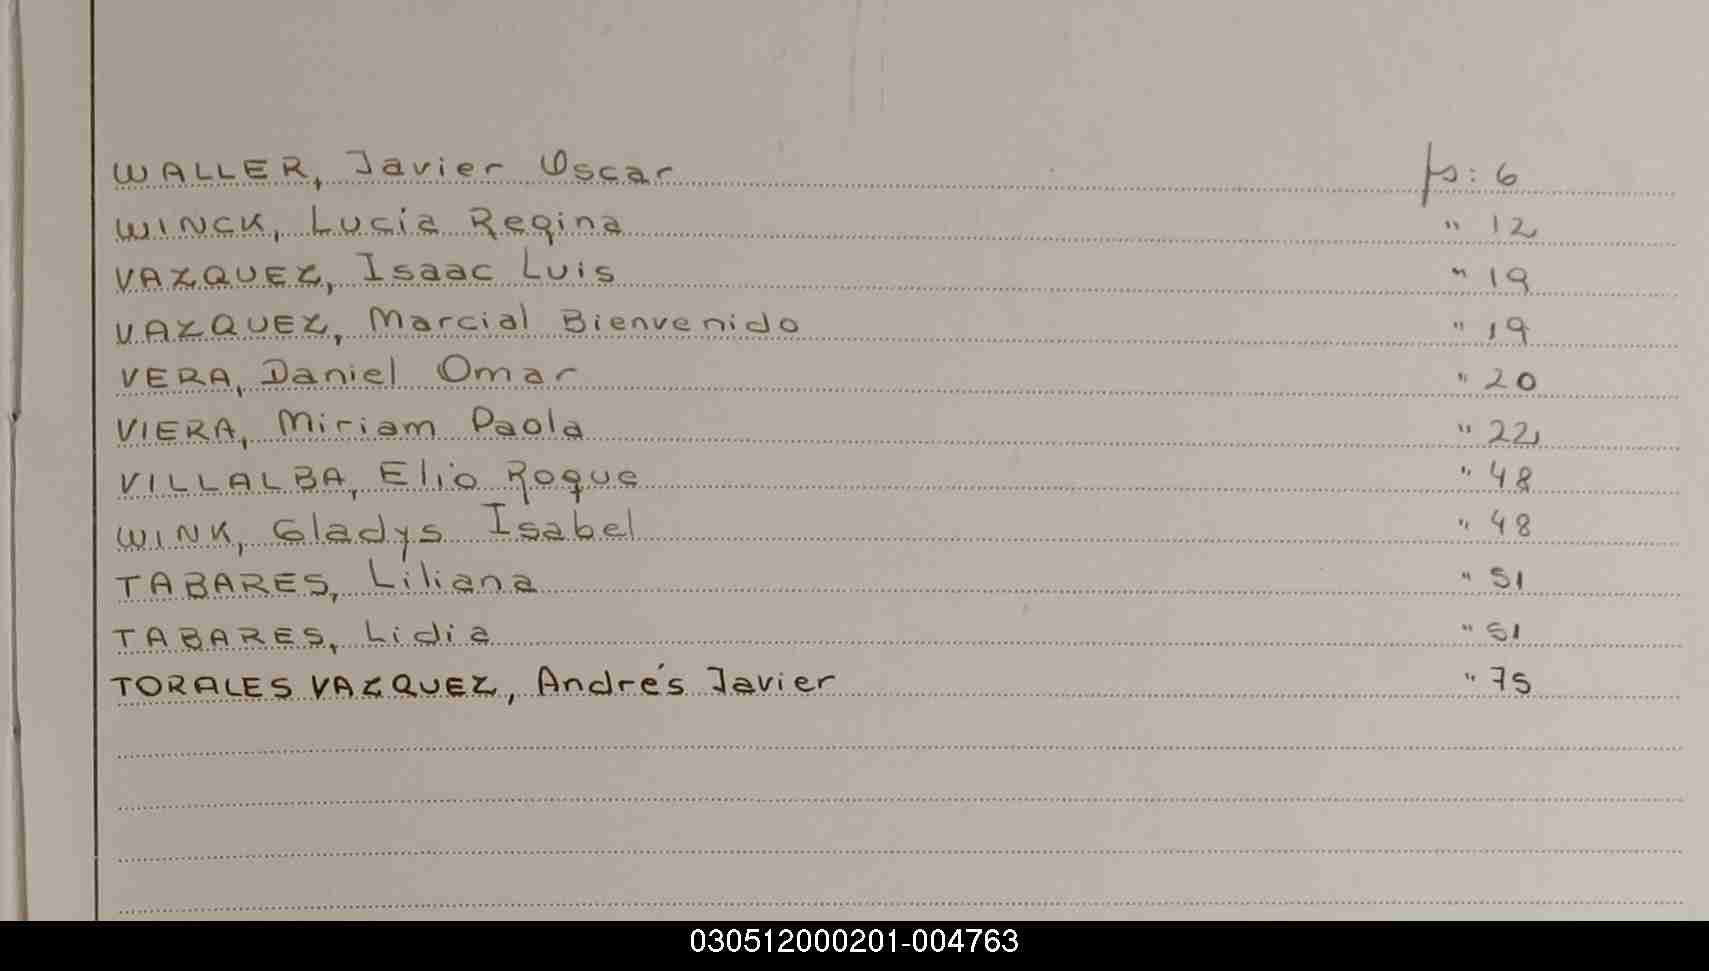 WALLER, Javier Oscar fs: 6
WINCK, Lucia Regina " 12
VAZQUEZ, Isaac Luis " 19
VAZQUEZ, Marcial Bienvenido " 19
VERA, Daniel Omar " 20
VIERA, Miriam Paola " 22
VILLALBA, Elio Roque " 48
WINK, Gladys Isabel " 48
TABARES, Liliana " 51
TABARES, Lidia " 51
TORALES VAZQUEZ, Andrés Javier " 75
030512000201-004763